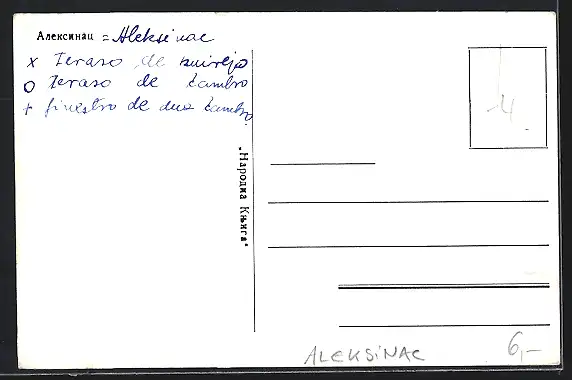 Алексинац = Aleksinac
x teraso de kuirejo
o teraso de ĉambro
+ finestro de dua ĉambro
„Народна Књига“
4.
ALEKSiNAC
6,-